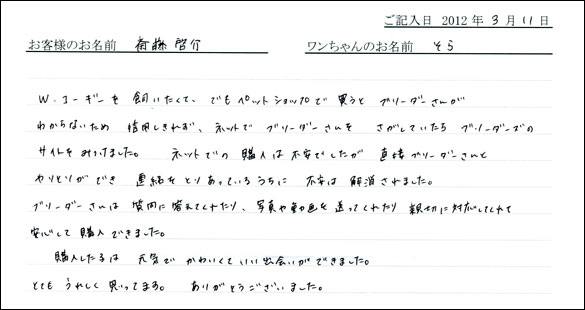 ご記入日 2012年 3月 11日
お客様のお名前 斎藤 啓介 ワンちゃんのお名前 そら
W.コーギーを 飼いたくて、でもペットショップで 買うと ブリーダーさんが
わからないため 信用しきれず、ネットで ブリーダーさんを さがしていたら ブリーダーズの
サイトを みつけました。 ネットでの 購入は 不安でしたが 直接ブリーダーさんと
やりとりができ 連絡を とりあっているうちに 不安は 解消されました。
ブリーダーさんは 質問に 答えてくれたり、写真や動画を 送ってくれたり 親切に対応してくれて
安心して 購入 できました。
購入した子は 元気で かわいくていい出会いができました。
とても うれしく 思ってます。 ありがとうございました。